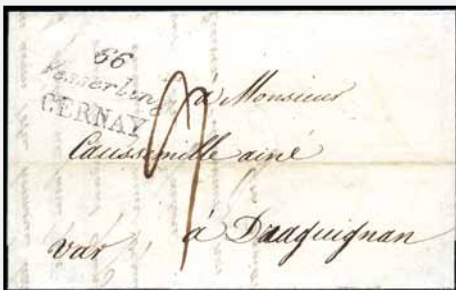 66
Wesserling
CERNAY
à Monsieur
Caussemille ainé
à Draguignan
Var